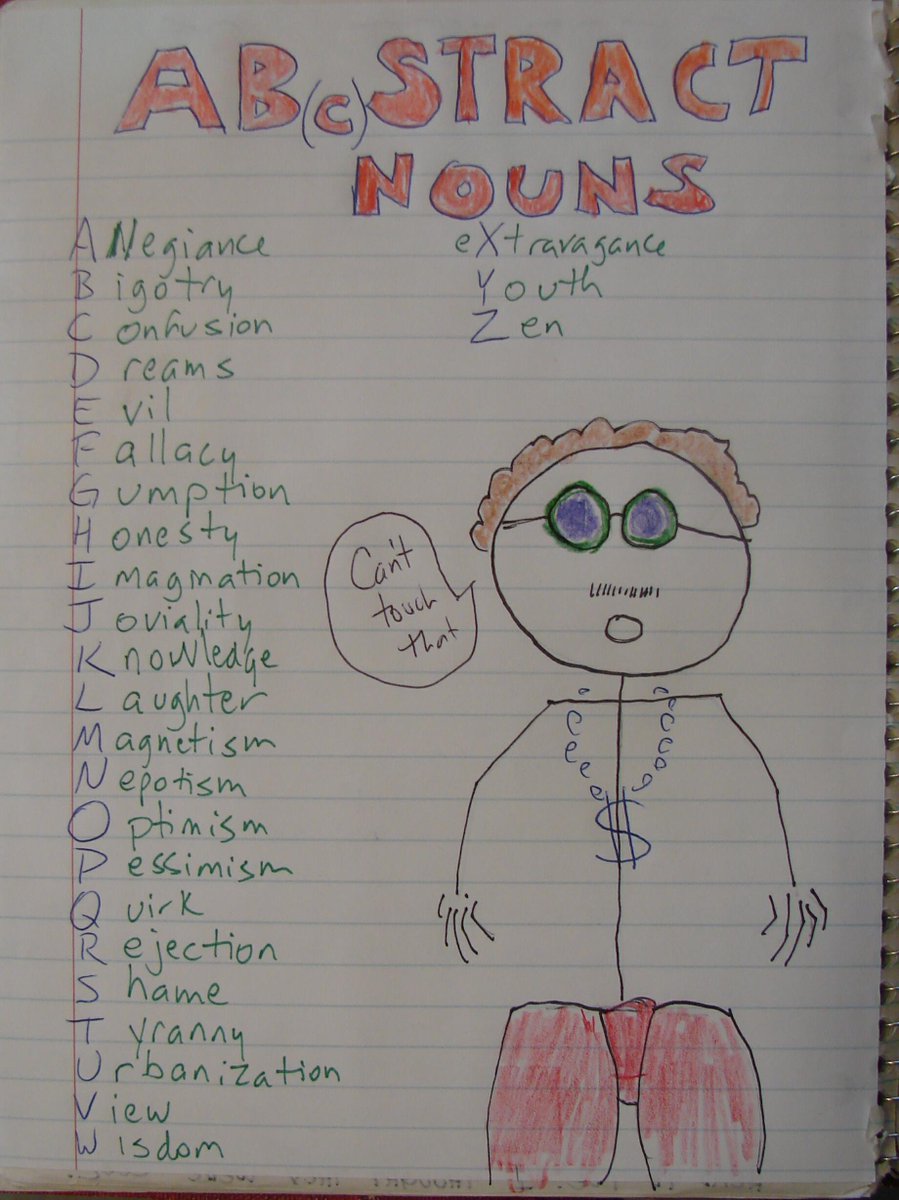 AB(C)STRACT
NOUNS
Allegiance
Bigotry
Confusion
Dreams
Evil
Fallacy
Gumption
Honesty
Imagination
Joviality
Knowledge
Laughter
Magnetism
Nepotism
Optimism
Pessimism
Quirk
Rejection
Shame
Tyranny
Urbanization
View
Wisdom
eXtravagance
Youth
Zen
Can't
touch
that
$